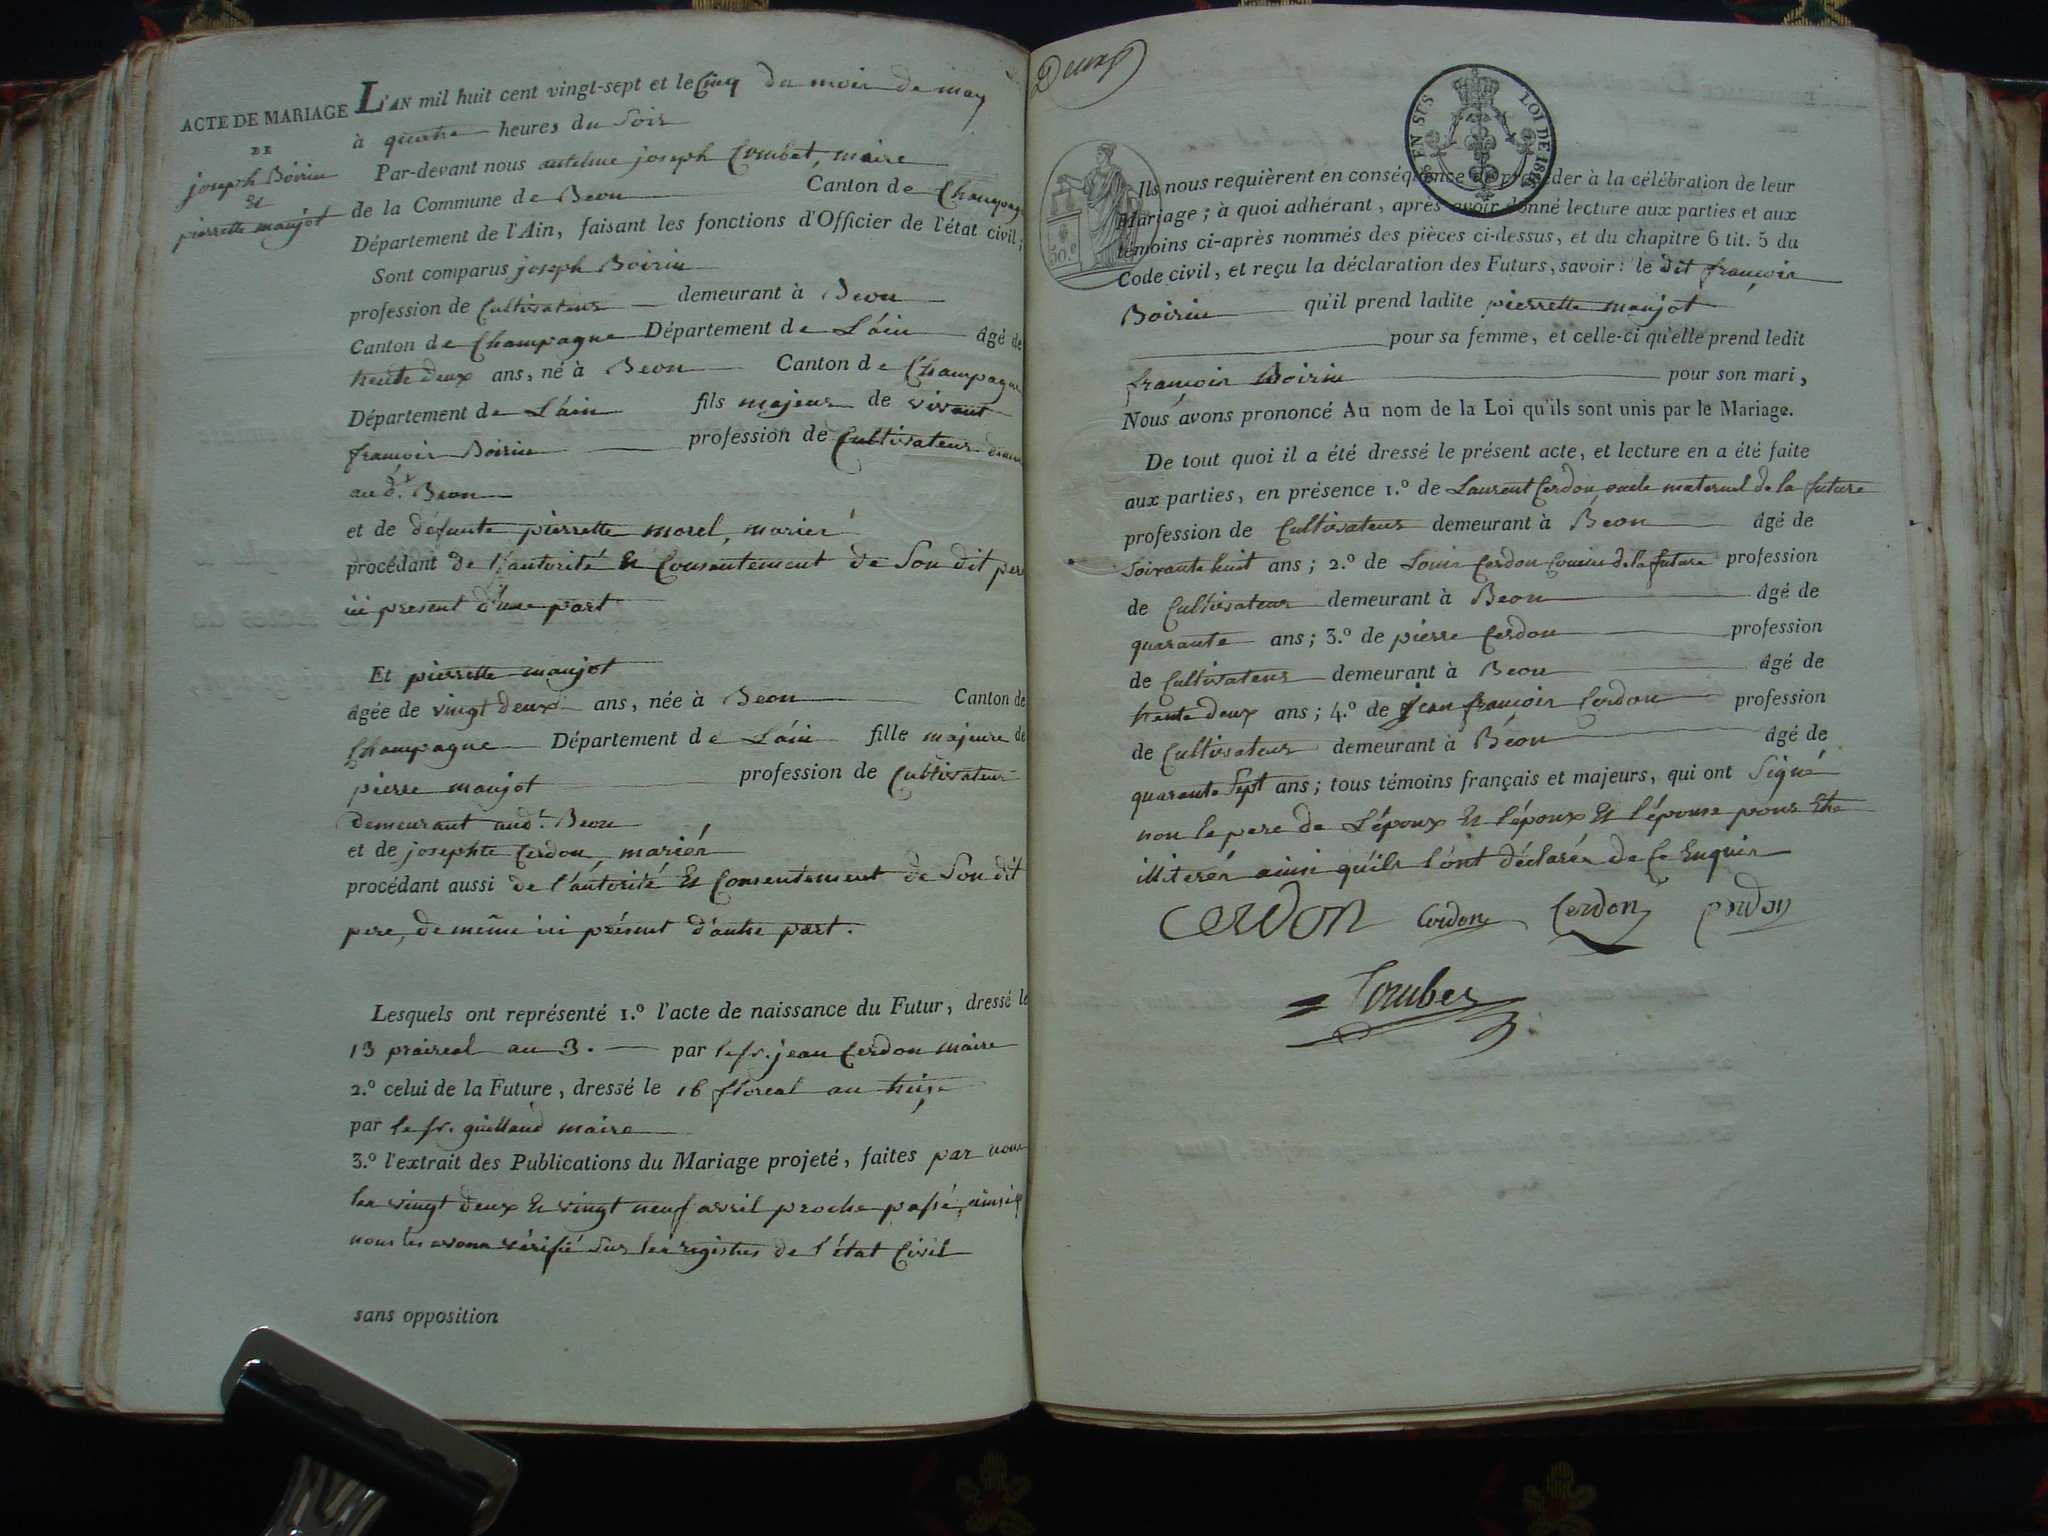 ACTE DE MARIAGE
DE
joseph Boirin
&
pierrette maujot
L'AN mil huit cent vingt-sept et le Cinq du mois de may
à quatre heures du Soir
Par-devant nous antelme joseph Combet, maire
de la Commune de Beon Canton de Champagne
Département de l'Ain, faisant les fonctions d'Officier de l'état civil;
Sont comparus joseph Boirin
profession de Cultivateur demeurant à Beon
Canton de Champagne Département de L'ain âgé de
trente deux ans, né à Beon Canton de Champagne
Département de L'ain fils majeur de vivant
françois Boirin profession de Cultivateur
aud.t Beon
et de défunte pierrette morel, mariés
procédant de l'autorité et Consentement de Son dit pere
ici present d'une part
Et pierrette maujot
âgée de vingt deux ans, née à Beon Canton de
Champagne Département de L'ain fille majeure de
pierre maujot profession de Cultivateur
demeurant aud.t Beon
et de josephte Cerdon, mariés
procédant aussi de l'autorité et Consentement de Son dit
pere, de même ici présent d'autre part.
Lesquels ont représenté 1.º l'acte de naissance du Futur, dressé le
13 praireal an 3. par le sr. jean Cerdon maire
2.º celui de la Future, dressé le 16 floreal an treize
par le sr. guillaud maire
3.º l'extrait des Publications du Mariage projeté, faites par nous
les vingt deux et vingt neuf avril proche passé, ainsi q
nous les avons vérifié Sur les registres de l'état Civil
sans opposition
Deux
EN SUS LOI DE
50.c
Ils nous requièrent en conséquence de procéder à la célébration de leur
Mariage; à quoi adhérant, après avoir donné lecture aux parties et aux
témoins ci-après nommés des pièces ci-dessus, et du chapitre 6 tit. 5 du
Code civil, et reçu la déclaration des Futurs, savoir: le dit françois
Boirin qu'il prend ladite pierrette maujot
pour sa femme, et celle-ci qu'elle prend ledit
françois Boirin pour son mari,
Nous avons prononcé Au nom de la Loi qu'ils sont unis par le Mariage.
De tout quoi il a été dressé le présent acte, et lecture en a été faite
aux parties, en présence 1.º de Laurent Cerdon, oncle maternel de la future
profession de Cultivateur demeurant à Beon âgé de
Soixante huit ans; 2.º de Louis Cerdon Cousin de la future profession
de Cultivateur demeurant à Beon âgé de
quarante ans; 3.º de pierre Cerdon profession
de Cultivateur demeurant à Beon âgé de
trente deux ans; 4.º de jean françois Cerdon profession
de Cultivateur demeurant à Béon âgé de
quarante Sept ans; tous témoins français et majeurs, qui ont Signé
non le pere de L'époux et l'époux et l'épouse pour Etre
illiterés ainsi qu'ils l'ont déclarés de Ce Enquis
CERDON Cerdon Cerdon Cerdon
Combet